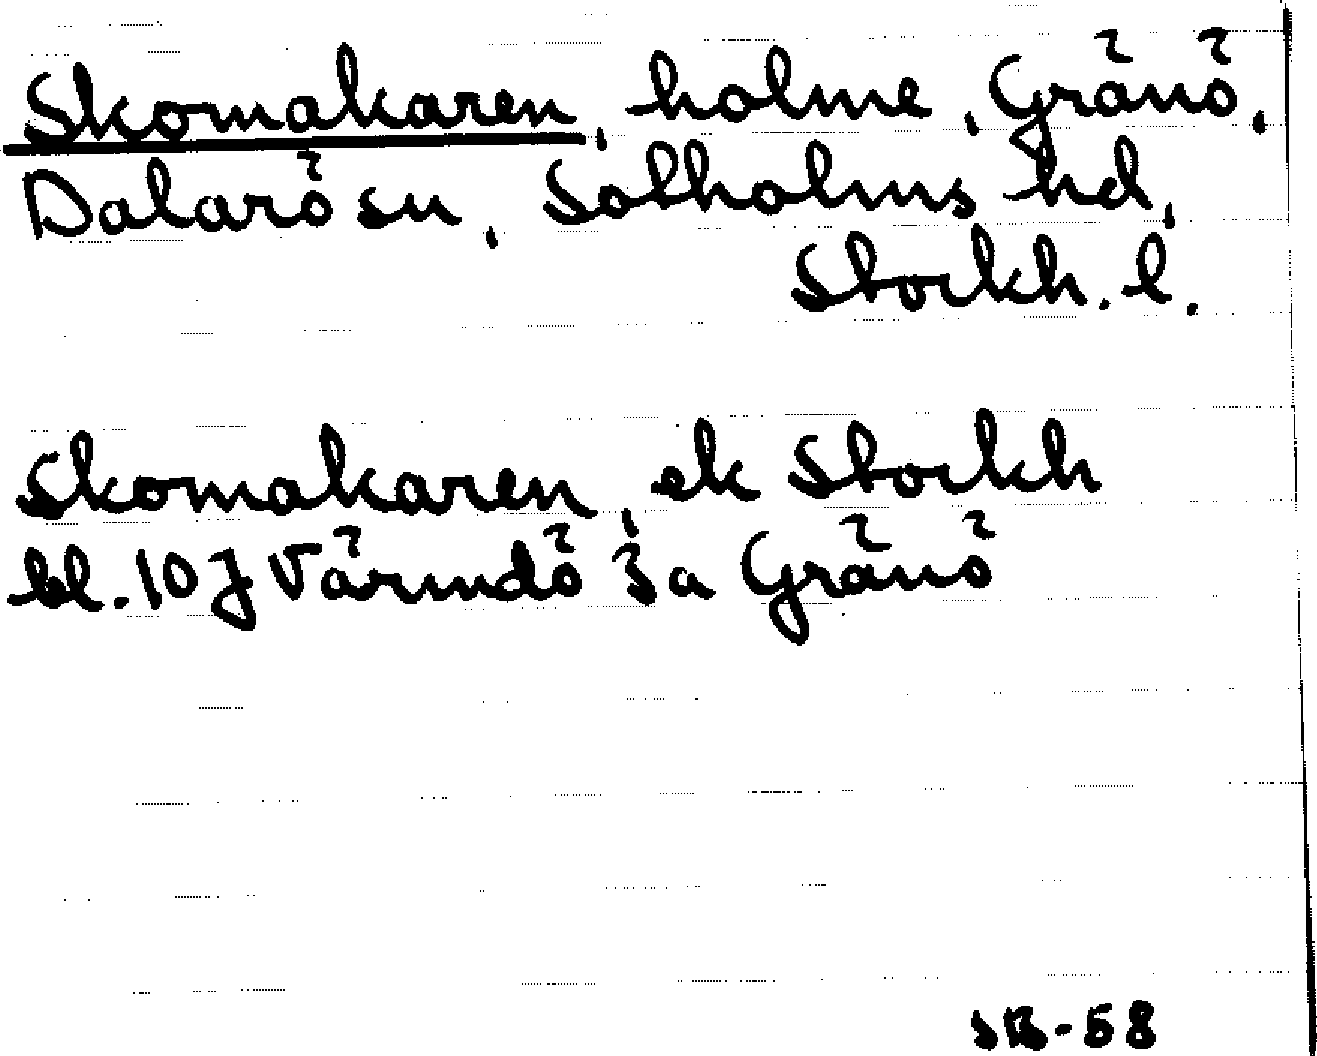 Skomakaren, holme, Gränö,
Dalarö sn, Sotholms hd,
Stockh. l.
Skomakaren, ek Stockh
bl. 10 J Värmdö 3a Gränö
SB-58